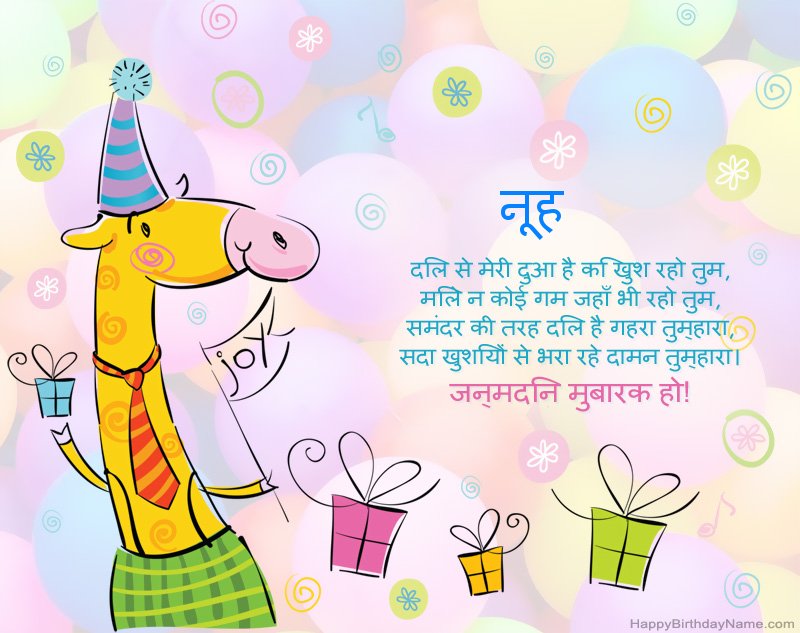 नूह
joy
दलि से मेरी दुआ है कि खुश रहो तुम,
मलिे न कोई गम जहाँ भी रहो तुम,
समंदर की तरह दलि है गहरा तुम्‌हारा,
सदा खुशयिों से भरा रहे दामन तुम्‌हारा।
जन्‌मदनि मुबारक हो!
HappyBirthdayName.com